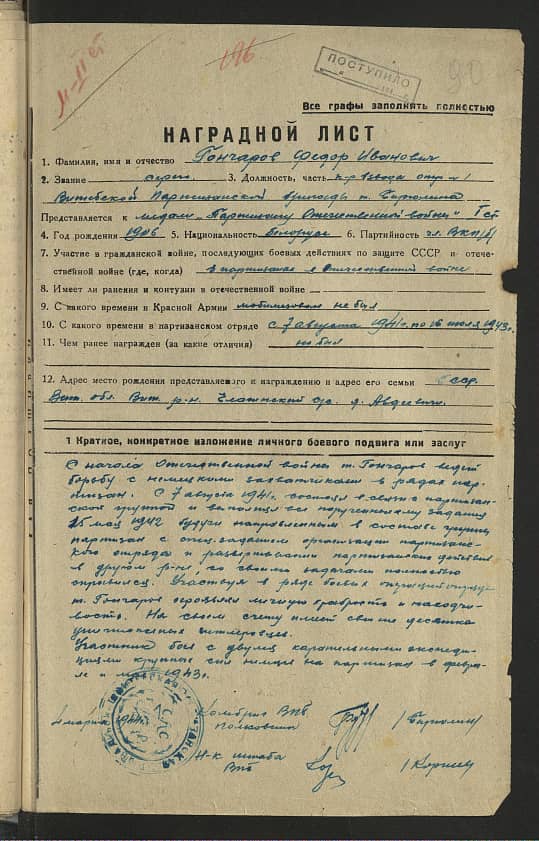 196
90
ПОСТУПИЛО
Все графы заполнять полностью
НАГРАДНОЙ ЛИСТ
1. Фамилия, имя и отчество Гончаров Федор Иванович
2. Звание 3. Должность, часть к-р взвода отр. №1
Витебской Партизанской бригады т. Бирюлина
Представляется к медали "Партизану Отечественной войны" I ст
4. Год рождения 1906 5. Национальность белорус 6. Партийность чл. ВКП/б/
7. Участие в гражданской войне, последующих боевых действиях по защите СССР и отече-
ственной войне (где, когда) в партизанах в Отечественной войне
8. Имеет ли ранения и контузии в отечественной войне
9. С какого времени в Красной Армии мобилизован не был
10. С какого времени в партизанском отряде с 7 августа 1941г. по 16 июля 1943г.
11. Чем ранее награжден (за какие отличия) не был
12. Адрес место рождения представляемого к награждению и адрес его семьи БССР
Вит. обл. Вит. р-н. с/с. д. Авдеевичи.
1 Краткое, конкретное изложение личного боевого подвига или заслуг
С начала Отечественной войны т. Гончаров ведет
борьбу с немецкими захватчиками в рядах пар-
тизан. С 7 августа 1941г. состоял в связи с партизан-
ской группой и выполнял все порученные задания
15 мая 1942 будучи направленным в составе группы
партизан с спец. заданием организации партизанс-
кого отряда и развертывании партизанских действий
в другом р-не, со своими задачами полностью
справился. Участвуя в ряде боевых операций
т. Гончаров проявлял личную храбрость и находчи-
вость. На своем счету имеет свыше десятка
уничтоженных гитлеровцев.
Участник боев с двумя карательными экспеди-
циями крупных сил немцев на партизан в февра-
ле и 1943г.
марта 1944г. Комбриг ВПБ
полковник /Бирюлин/
Н-к штаба
ВПБ